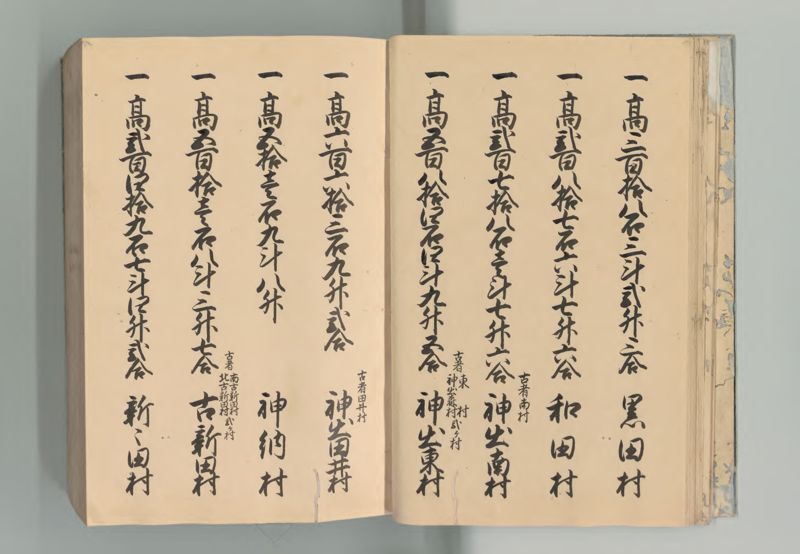 一高三百拾八石三斗弐升二合 黒田村
一高弐百八拾七石六斗七升六合 和田村
一高弐百七拾八石壱斗七升六合
古者南村
神出南村
一高五百八拾四石四斗九升五合
古者 東村 神出森村 弐ケ村
神出東村
一高六百六拾二石九升弐合
古者田井村
神出田井村
一高五拾壱石九斗八升 神納村
一高五百拾壱石八斗二升七合
古者 南古新田村 北古新田村 弐ケ村
古新田村
一高弐百四拾九石七斗四升弐合 新々田村